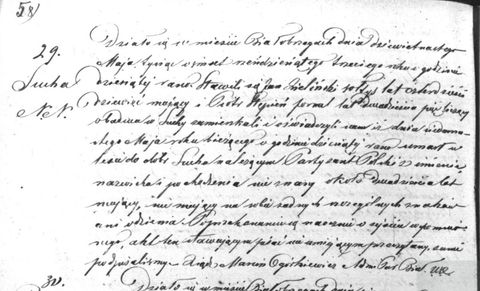 58
29.
Sucha
N. N.
Działo się w mieście Białobrzegach dnia dziewiętnastego
Maja tysiąc ośmset sześdziesiątego trzeciego roku o godzinie
dziesiątej rano. Stawili się Jan Zieliński sołtys lat czterdzieści
dziewięć mający i Piotr Stępień fornal lat dwadzieścia pięć liczący
obadwa w Suchy zamieszkali i oświadczyli nam iż dnia siedmna-
stego Maja roku bieżącego o godzinie dziesiątej rano umarł w
lesie do dóbr Sucha należącym Partyzant Polski z imienia
nazwiska i pochodzenia nie znany około dwadzieścia lat
mający, nie mający na sobie żadnych szczególnych znaków
ani odzienia. Po przekonaniu się naocznie o zejściu wspomnio-
nego, akt ten stawającym pisać nie umiejącym przeczytany, sami
podpisaliśmy. Xiądz Marcin Ogórkiewicz Adm. Par. Biał.
30.
Działo się w mieście Białobrzegach